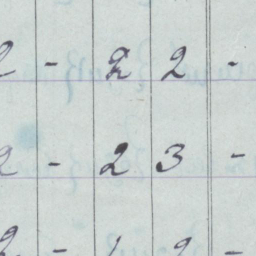 2 - 22 -
2 - 23 -
2 - 1 2 -